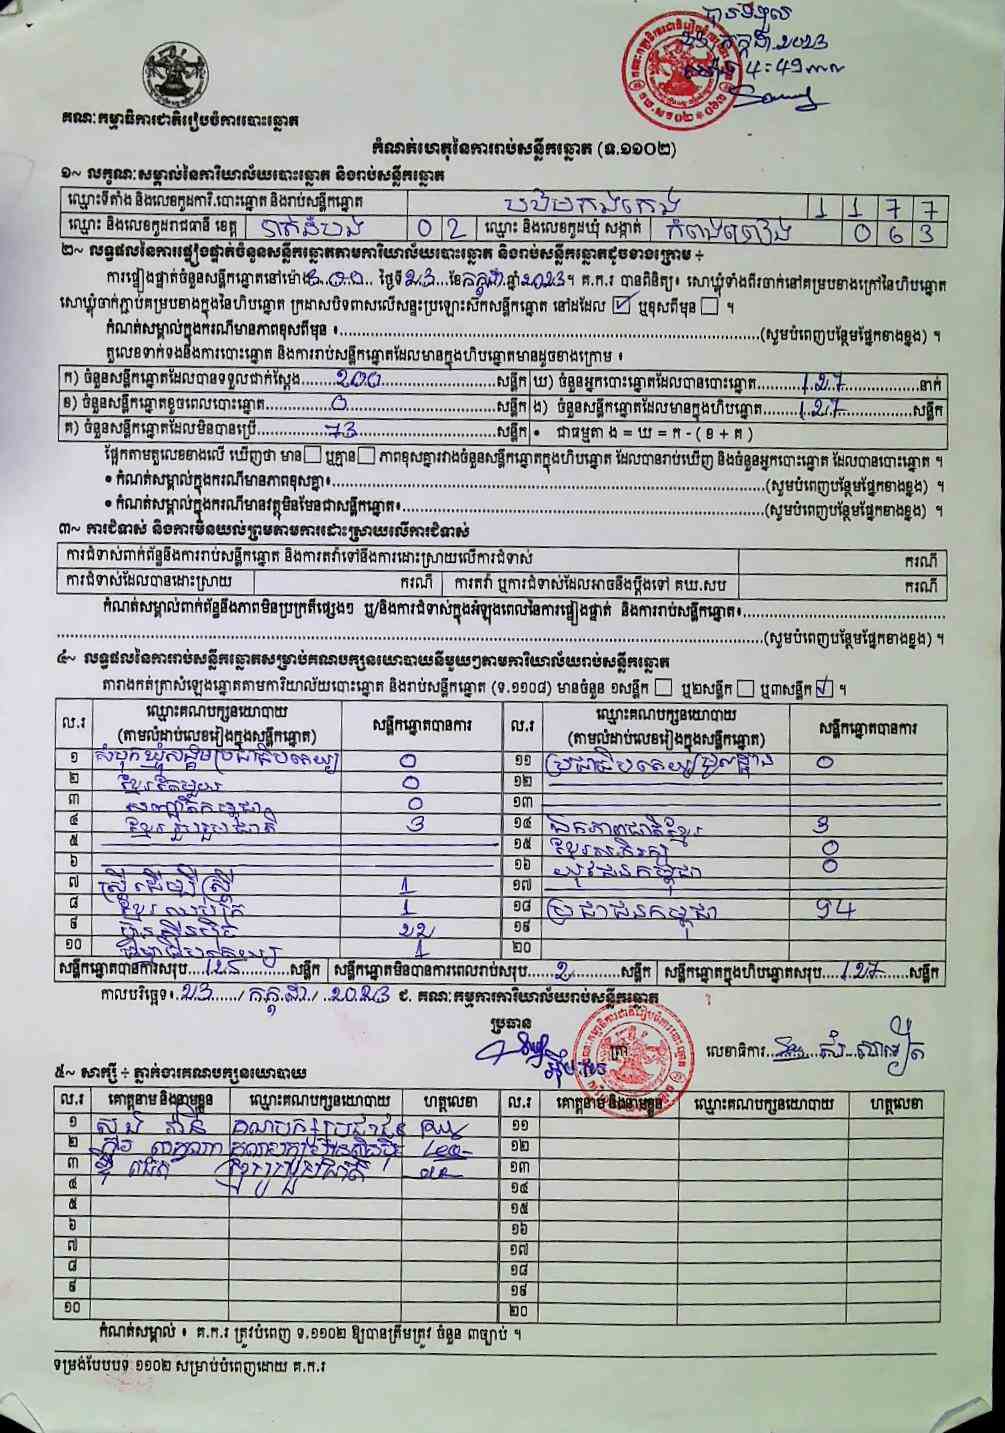 បានទទួល
២៣ កក្កដា 2023
ម៉ោង 4:49
គណៈកម្មាធិការជាតិរៀបចំការបោះឆ្នោត
កំណត់ហេតុនៃការរាប់សន្លឹកឆ្នោត (ទ.១១០២)
១~ លក្ខណៈសម្គាល់នៃការិយាល័យបោះឆ្នោត និងរាប់សន្លឹកឆ្នោត
ឈ្មោះទីតាំង និងលេខកូដការិ.បោះឆ្នោត និងរាប់សន្លឹកឆ្នោត 1 1 7 7
ឈ្មោះ និងលេខកូដរាជធានី ខេត្ត បាត់ដំបង 0 2 ឈ្មោះ និងលេខកូដឃុំ សង្កាត់ កំពង់ព្រៀង 0 6 3
២~ លទ្ធផលនៃការផ្ទៀងផ្ទាត់ចំនួនសន្លឹកឆ្នោតតាមការិយាល័យបោះឆ្នោត និងរាប់សន្លឹកឆ្នោតដូចខាងក្រោម ÷
ការផ្ទៀងផ្ទាត់ចំនួនសន្លឹកឆ្នោតនៅម៉ោង 3:00 ថ្ងៃទី 23 ខែ កក្កដា ឆ្នាំ 2023។ គ.ក.រ បានពិនិត្យ៖ សោឃ្លុំទាំងពីរចាក់នៅគម្របខាងក្រៅនៃហិបឆ្នោត
សោឃ្លុំចាក់ភ្ជាប់គម្របខាងក្នុងនៃហិបឆ្នោត ក្រដាសបិទពាសលើសន្ទះប្រឡោះសឹកសន្លឹកឆ្នោត នៅដដែល ☑ ឬខុសពីមុន ☐ ។
កំណត់សម្គាល់ក្នុងករណីមានភាពខុសពីមុន ៖ (សូមបំពេញបន្ថែមផ្នែកខាងខ្នង) ។
តួលេខទាក់ទងនឹងការបោះឆ្នោត និងការរាប់សន្លឹកឆ្នោតដែលមានក្នុងហិបឆ្នោតមានដូចខាងក្រោម ៖
ក) ចំនួនសន្លឹកឆ្នោតដែលបានទទួលជាក់ស្តែង 200 សន្លឹក ឃ) ចំនួនអ្នកបោះឆ្នោតដែលបានបោះឆ្នោត 127 នាក់
ខ) ចំនួនសន្លឹកឆ្នោតខូចពេលបោះឆ្នោត 0 សន្លឹក ង) ចំនួនសន្លឹកឆ្នោតដែលមានក្នុងហិបឆ្នោត 127 សន្លឹក
គ) ចំនួនសន្លឹកឆ្នោតដែលមិនបានប្រើ 73 សន្លឹក • ជាធម្មតា ង = ឃ = ក - ( ខ + គ )
ផ្អែកតាមតួលេខខាងលើ ឃើញថា មាន ☐ ឬគ្មាន ☐ ភាពខុសគ្នារវាងចំនួនសន្លឹកឆ្នោតក្នុងហិបឆ្នោត ដែលបានរាប់ឃើញ និងចំនួនអ្នកបោះឆ្នោត ដែលបានបោះឆ្នោត ។
• កំណត់សម្គាល់ក្នុងករណីមានភាពខុសគ្នា៖ (សូមបំពេញបន្ថែមផ្នែកខាងខ្នង) ។
• កំណត់សម្គាល់ក្នុងករណីមានវត្ថុមិនមែនជាសន្លឹកឆ្នោត៖ (សូមបំពេញបន្ថែមផ្នែកខាងខ្នង) ។
៣~ ការជំទាស់ និងការមិនយល់ព្រមតាមការដោះស្រាយលើការជំទាស់
ការជំទាស់ពាក់ព័ន្ធនឹងការរាប់សន្លឹកឆ្នោត និងការតវ៉ាទៅនឹងការដោះស្រាយលើការជំទាស់ ករណី
ការជំទាស់ដែលបានដោះស្រាយ ករណី ការតវ៉ា ឬការជំទាស់ដែលអាចនឹងប្តឹងទៅ គឃ.សប ករណី
កំណត់សម្គាល់ពាក់ព័ន្ធនឹងភាពមិនប្រក្រតីផ្សេងៗ ឬ/និងការជំទាស់ក្នុងអំឡុងពេលនៃការផ្ទៀងផ្ទាត់ និងការរាប់សន្លឹកឆ្នោត៖
(សូមបំពេញបន្ថែមផ្នែកខាងខ្នង) ។
៤~ លទ្ធផលនៃការរាប់សន្លឹកឆ្នោតសម្រាប់គណបក្សនយោបាយនីមួយៗតាមការិយាល័យរាប់សន្លឹកឆ្នោត
តារាងកត់ត្រាសំឡេងឆ្នោតតាមការិយាល័យបោះឆ្នោត និងរាប់សន្លឹកឆ្នោត (ទ.១១០៨) មានចំនួន ១សន្លឹក ☐ ឬ២សន្លឹក ☐ ឬ៣សន្លឹក ☑ ។
ល.រ ឈ្មោះគណបក្សនយោបាយ (តាមលំដាប់លេខរៀងក្នុងសន្លឹកឆ្នោត) សន្លឹកឆ្នោតបានការ ល.រ ឈ្មោះគណបក្សនយោបាយ (តាមលំដាប់លេខរៀងក្នុងសន្លឹកឆ្នោត) សន្លឹកឆ្នោតបានការ
១ សំបុកឃ្មុំសង្គមប្រជាធិបតេយ្យ 0 ១១ ប្រជាធិបតេយ្យមូលដ្ឋាន 0
២ ខ្មែរតែមួយ 0 ១២
៣ សញ្ជាតិកម្ពុជា 0 ១៣
៤ ខ្មែររួបរួមជាតិ 3 ១៤ ឯកភាពជាតិខ្មែរ 3
៥ ១៥ ខ្មែរអភិរក្ស 0
៦ ១៦ យុវជនកម្ពុជា 0
៧ ស្រ្តីដើម្បីស្រ្តី 1 ១៧
៨ ខ្មែរឈប់ក្រ 1 ១៨ ប្រជាជនកម្ពុជា 94
៩ ហ៊្វុនស៊ិនប៉ិច 22 ១៩
១០ ធម្មាធិបតេយ្យ 1 ២០
សន្លឹកឆ្នោតបានការសរុប 125 សន្លឹក សន្លឹកឆ្នោតមិនបានការពេលរាប់សរុប 2 សន្លឹក សន្លឹកឆ្នោតក្នុងហិបឆ្នោតសរុប 127 សន្លឹក
កាលបរិច្ឆេទ៖ 23 / កក្កដា / 2023 ជ. គណៈកម្មការការិយាល័យរាប់សន្លឹកឆ្នោត
ប្រធាន
ត្រា លេខាធិការ
៥~ សាក្សី ÷ ភ្នាក់ងារគណបក្សនយោបាយ
ល.រ គោត្តនាម និងនាមខ្លួន ឈ្មោះគណបក្សនយោបាយ ហត្ថលេខា ល.រ គោត្តនាម និងនាមខ្លួន ឈ្មោះគណបក្សនយោបាយ ហត្ថលេខា
១ គណបក្សប្រជាជន ១១
២ គណបក្សហ៊្វុនស៊ិនប៉ិច ១២
៣ ខ្មែររួបរួមជាតិ ១៣
៤ ១៤
៥ ១៥
៦ ១៦
៧ ១៧
៨ ១៨
៩ ១៩
១០ ២០
កំណត់សម្គាល់ ៖ គ.ក.រ ត្រូវបំពេញ ទ.១១០២ ឱ្យបានត្រឹមត្រូវ ចំនួន ៣ច្បាប់ ។
ទម្រង់បែបបទ ១១០២ សម្រាប់បំពេញដោយ គ.ក.រ